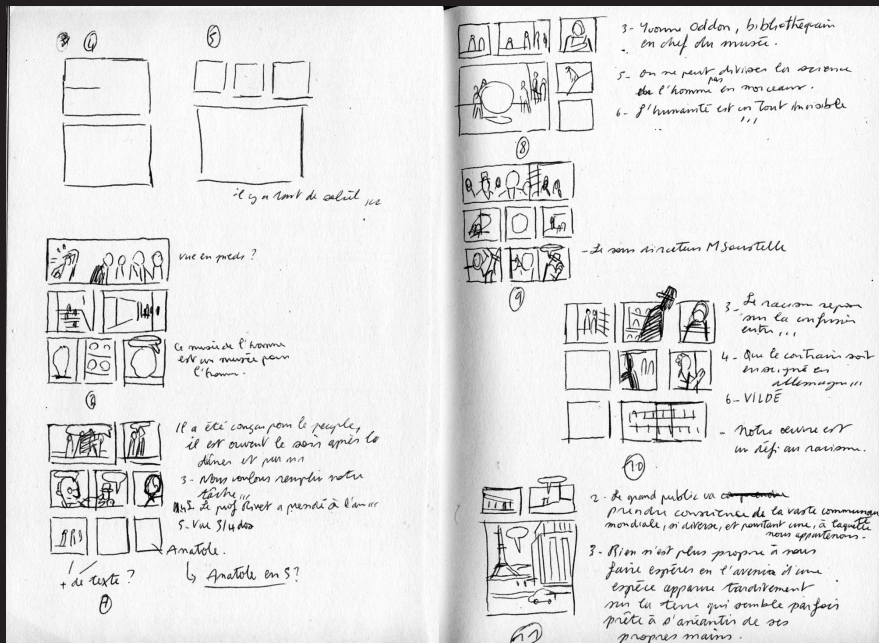 4
5
il y a tant de soleil ,,,
vue en pieds ?
Ce musée de l'homme
est un musée pour
l'homme.
6
Il a été conçu pour le peuple,
il est ouvert le soir après le
dîner et
3 - Nous voulons remplir notre
tâche ,,,
Le prof Rivet a
5 - Vue 3/4 dos
Anatole.
+ de texte ?
↳ Anatole en 5 ?
7
3 - Yvonne Oddon, bibliothécaire
en chef du musée.
5 - on ne peut pas diviser la science
de l'homme en morceaux.
6 - L'humanité est un tout indivisible
,,,
8
- Le sous directeur M Soustelle
9
3 - Le racisme repose
sur la confusion
entre ,,,
4 - Que le contraire soit
enseigné en
allemagne ,,,
6 - VILDÉ
- Notre œuvre est
un défi au racisme.
10
2 - Le grand public va comprendre
prendre conscience de la vaste communauté
mondiale, si diverse, et pourtant une, à laquelle
nous appartenons.
3 - Rien n'est plus propre à nous
faire espérer en l'avenir d'une
espèce apparue tardivement
sur la terre qui semble parfois
prête à s'anéantir de ses
propres mains.